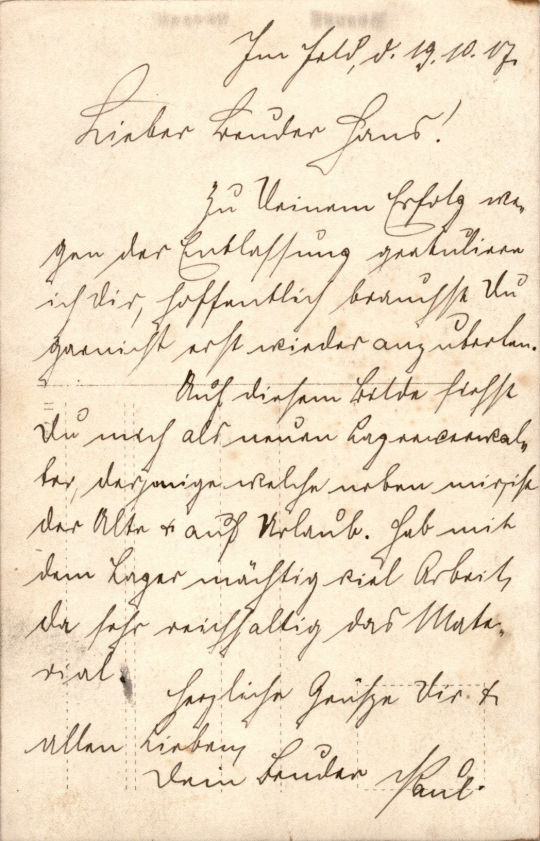 Im Feld, d. 19.10.17.
Lieber Bruder Hans!
Zu Deinem Erfolg we-
gen der Entlassung gratuliere
ich Dir, hoffentlich brauchst Du
garnicht erst wieder anzutreten.
Auf diesem Bilde siehst
Du mich als neuen Lagerverwal-
ter, derjenige welche neben mir, ist
der Alte & auf Urlaub. Hab mit
dem Lager mächtig viel Arbeit,
da sehr reichhaltig das Mate-
rial.
Herzliche Grüsze Dir &
allen Lieben,
Dein Bruder Paul.